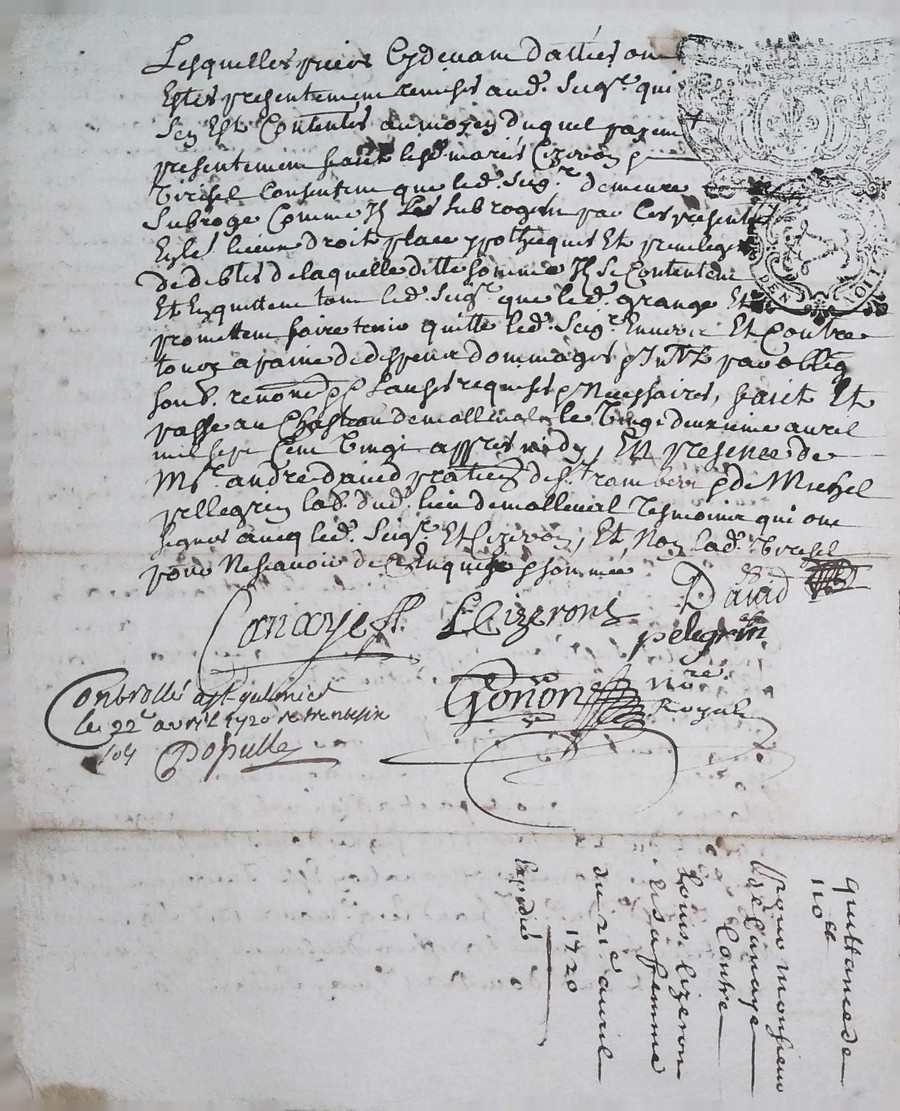 Lesquelles pieces Cydevant dattées ont
Estés presentement remises aud. Seigr. qui
Sen Est Contentés au moyen duquel payemt
presentement faict lesd. mariés Cizeron &
Tressel Consentent que led. Seigr. demeure
Subroge Comme Ils Les subrogent par Ces presentes
En les lieux droit place ypothecques Et privileges
De debtes de laquelle ditte somme Ils se Contentent
Et Enquittent tant led. Seigr. que led. grange Et
promettent faire tenir quitte led. Seigr. Envers Et Contre
tous a paine de despens dommages & Inthz par oblig
soub. renonc & Clauses requises & Necessaires, faict Et
passé au Chasteau de malleval le vingt deuxieme avril
mil sept Cent vingt appres midy, En presence de
Mre. andre david praticien de St. rambert & de Michel
pellegrin lab. dud. lieu de malleval Tesmoins qui ont
signés avecq led. Seigr. Et Cizeron, Et Non lad. Tressel
pour Ne scavoir de Ce Enquise & sommée
Canaye
L Cizerons
David
pelegrin
Gonon nore. Royal
Controllé a St galmier
le 22e avril 1720 R trentesix
sols
Populle
DEN VOIT
Quittance de
110 ll
pour monsieur
De Canaye
Contre
Louis Cizeron
Et sa femme
du 22e avril
1720
Expedié